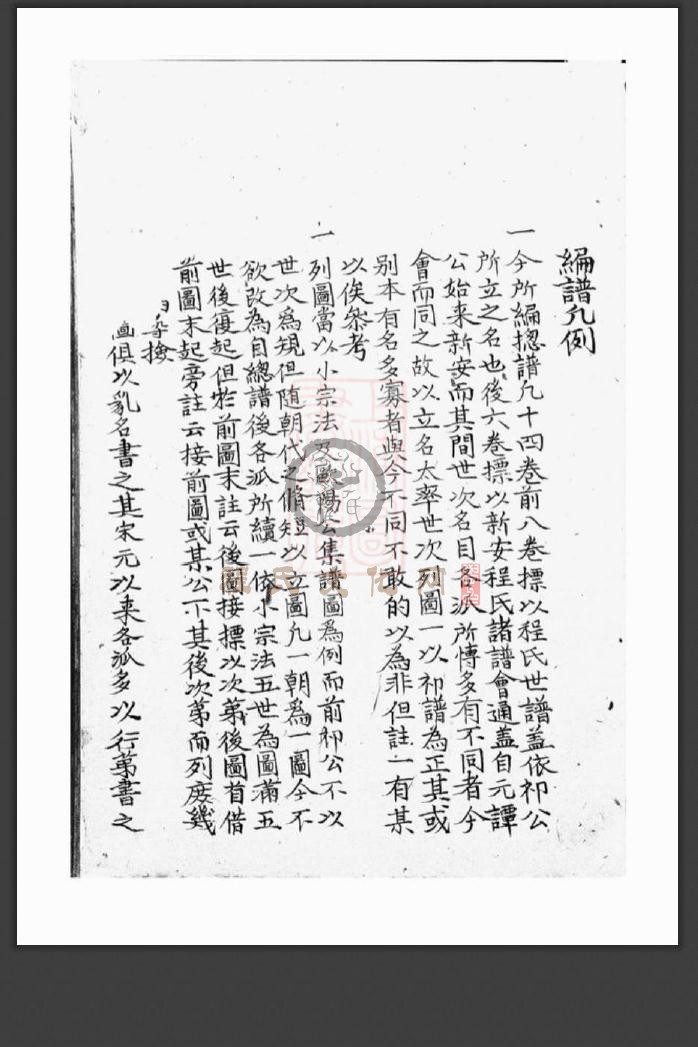 編譜凡例
一 今所編揔譜凡十四卷前八卷摽以程氏世譜盖依祁公
所立之名也後六卷摽以新安程氏諸譜會通盖自元譚
公始来新安而其間世次名目各派所傳多有不同者今
會而同之故以立名太率世次列圖一以祁譜為正其或
别本有名多寡者與今不同不敢的以為非但註一有某
以俟叅考
一 列圖當以小宗法及歐陽公集譜圖為例而前祁公不以
世次為規但随朝代之脩短以立圖凡一朝為一圖今不
欲改為自總譜後各派所續一依小宗法五世為圖滿五
世後復起但於前圖末註云後圖接摽以次第後圖首借
前圖末起旁註云接前圖或某公下其後次第而列庻幾
尋撿
俱以亂名書之其宋元以来各派多以行第書之